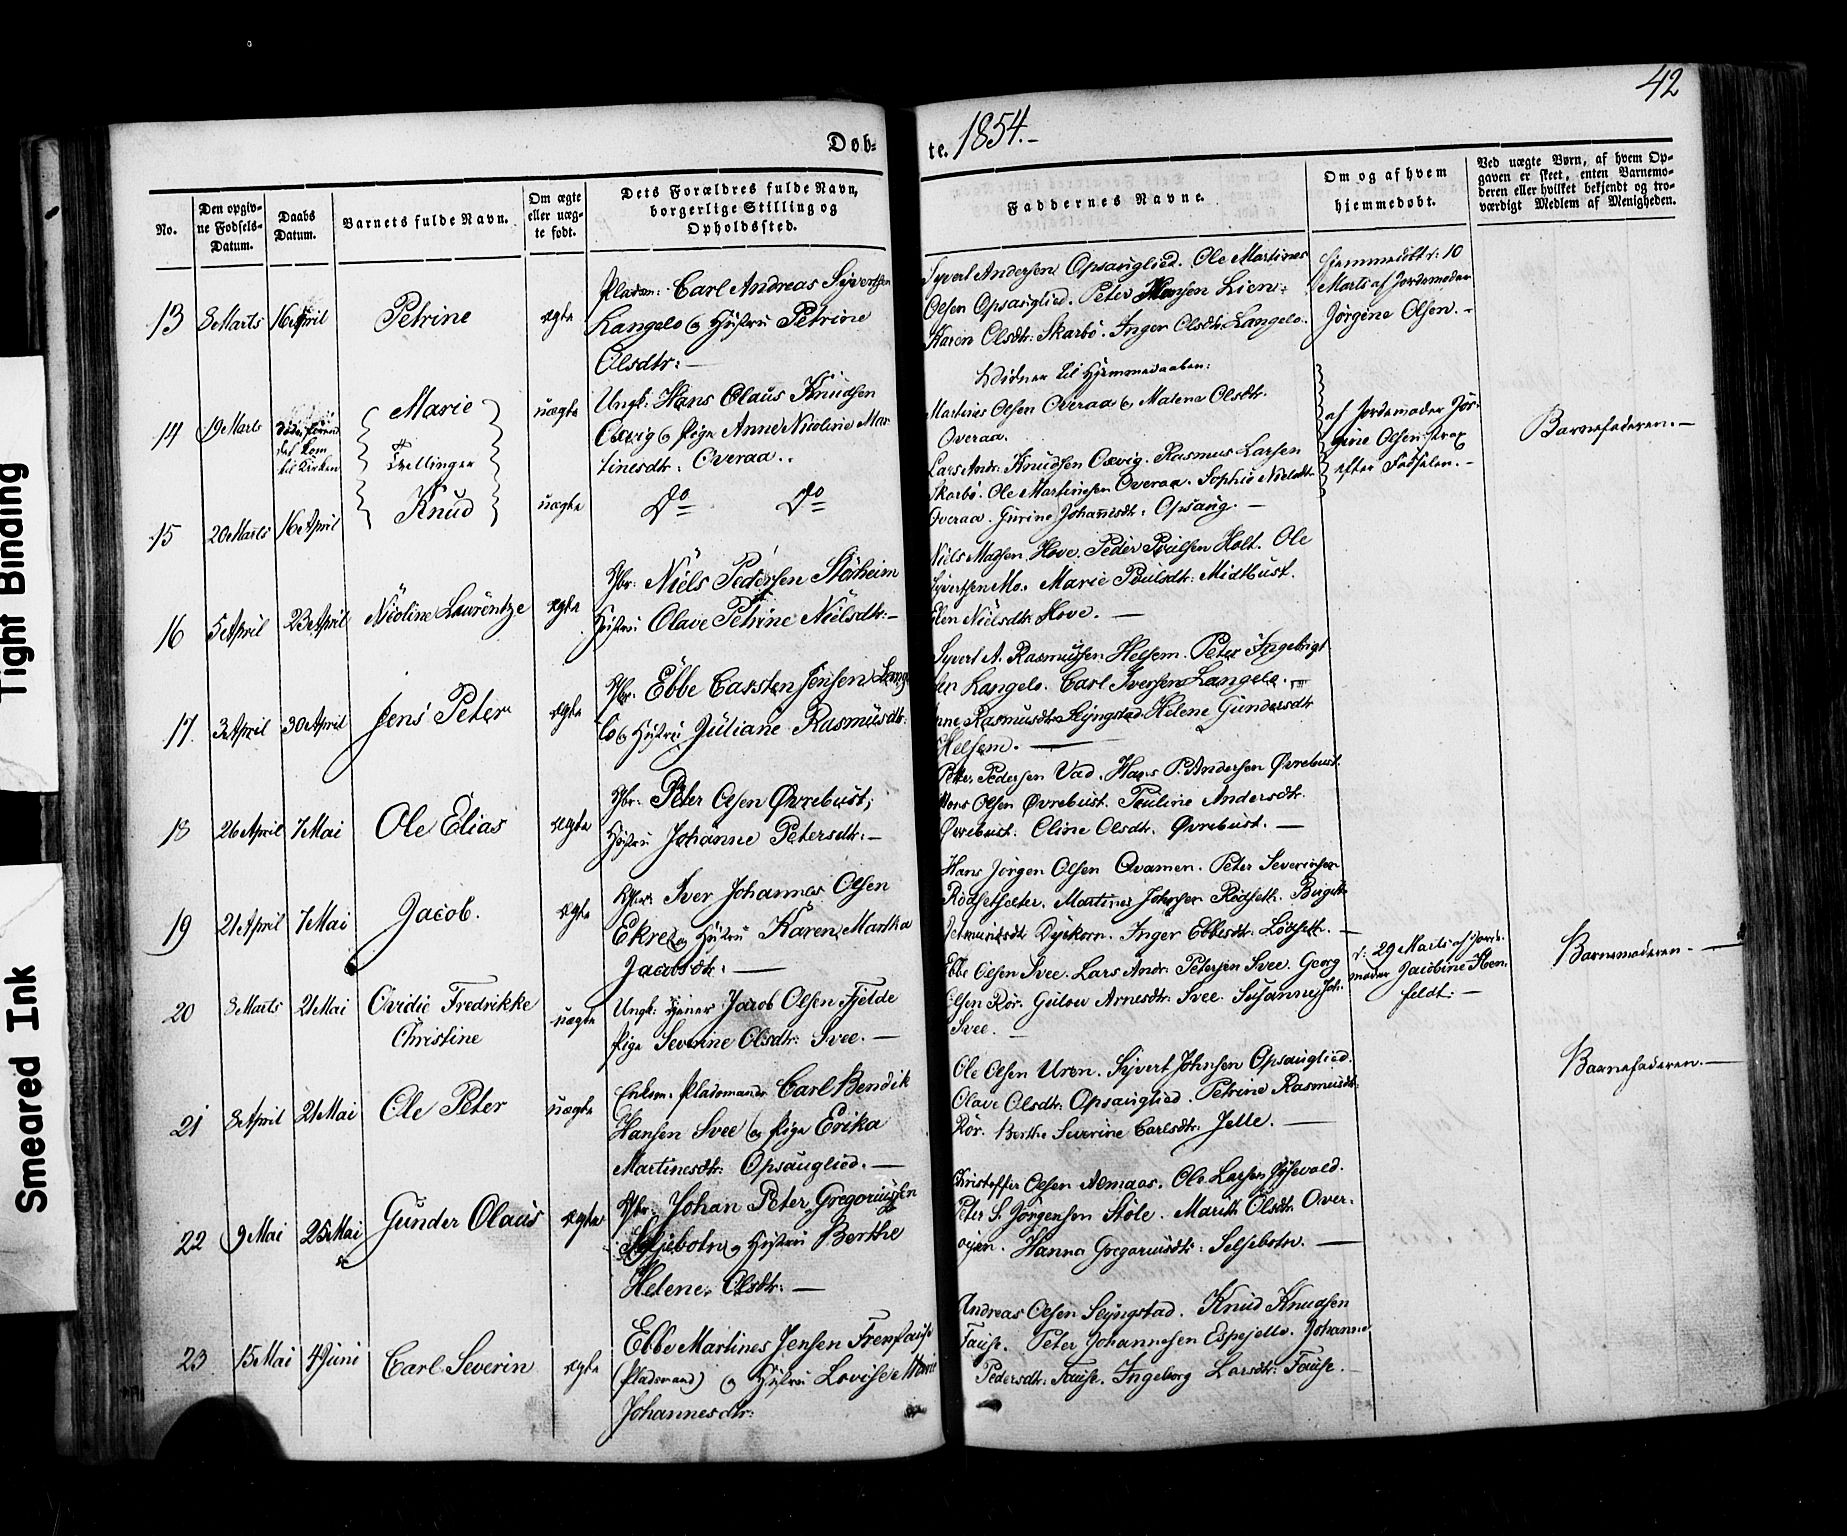 42
Døb-
te. 1854.-
No.
Den opgiv-
ne Fødsels-
Datum.
Daabs
Datum.
Barnets fulde Navn.
Om ægte
eller uæg-
te født.
Dets Forældres fulde Navn,
borgerlige Stilling og
Opholdssted.
Faddernes Navne.
Om og af hvem
hjemmedøbt.
Ved uægte Børn, af hvem Op-
gaven er skeet, enten Barnemo-
deren eller hvilket bekjendt og tro-
værdigt Medlem af Menigheden.
13 8 Marts 16 April Petrine ægte
Pladsm: Carl Andreas Syvertsen
Langelo og Hustru Petrine
Olsdtr: —
Syvert Andersen Opsanglied. Ole Martines
Olsen Opsanglied. Peter Hansen Lien.
Karen Olsdtr: Skarbø. Inger Olsdtr. Langelo.
Hjemmedøbt d: 10
Marts af Jordemoder
Jørgine Olsen. -
Vidner til Hjemmedaaben:
14 19 Marts
døde förend
det kom
til Kirken
Marie
Tvillinger
uægte
Ungk: Hans Olaus Knudsen
Oxvig og Pige Anne Nicoline Mar-
tinesdtr: Overaa..
Martines Olsen Overaa og Malene Olsdtr.
Overaa.
af Jordemoder Jør-
gine Olsen strax
efter Fødselen. -
Barnefaderen. —
15 20 Marts 16 April Knud uægte
Do Do
Lars Andr: Knudsen Oxvig. Rasmus Larsen
Skarbø. Ole Martinesen Overaa. Sophie Nielsdtr
Overaa. Gurine Johannsdtr: Opsang. —
16 5 April 23 April Nicoline Laurentze ægte
Gbr: Niels Pedersen Storheim
Hustru Olave Petrine Nielsdtr: —
Niels Madsen Hove. Peder Poulsen Holt. Ole
Syvertsen Mo. Marie Poulsdtr: Midtbust.
Elen Nielsdtr: Hove. —
17. 3 April 30 April Jens Peter ægte
Gbr. Ebbe Carsten Jensen Lange
lo og Hustru Juliane Rasmusdtr.
Syvert A. Rasmussen Helsem. Peter Ingebrigt
sen Langelo. Carl Iversen Langelo.
Anne Rasmusdtr Slyngstad. Helene Gundersdtr
Helsem. —
18 26 April 7 Mai Ole Elias ægte
Gbr: Peter Olsen Øvrebust,
Hustru Johanne Petersdtr. —
Peder Pedersen Vad. Hans P. Andersen Øvrebust.
Mons Olsen Øvrebust. Pauline Andersdtr.
Øvrebust. Oline Olsdtr. Øvrebust. —
19 21 April 7 Mai Jacob. ægte
Gbr: Iver Johannes Olsen
Ekre og Hustru Karen Martha
Jacobsdtr: —
Hans Jørgen Olsen Qvamen. Peter Severinsen
Rødsetsæter. Martines Johnsen Rødseth. Birgitte
Dyrkorn. Inger Ebbesdtr. Lødseth. —
20 8 Marts 21 Mai Ovidie Fredrikke
Christine
uægte
Ungk: tjener Jacob Olsen Fjelde
Pige Severine Olsdtr: Svee. —
Ebbe Olsen Svee. Lars Andr: Petersen Svee. Georg
Olsen Rør. Gulow Arnesdtr: Svee. Susanne Joh:
Svee. —
d: 29 Marts af Jorde-
moder Jacobine Steen
feldt: —
Barnemoderen. —
21 8 April 21 Mai Ole Peter uægte
Enkem: Pladsmand Carl Bendik
Hansen Svee og Pige Erika
Martinesdtr: Opsanglied. —
Ole Olsen Uren. Syvert Johnsen Opsanglied.
Olave Olsdtr: Opsanglied. Petrine Rasmusdtr:
Rør. Berthe Severine Carlsdtr. Jelle. —
Barnefaderen. —
22 9 Mai 25 Mai Gunder Olaus ægte
Gbr: Johan Peter Gregoriussen
og Hustru Berthe
Helene Olsdtr: —
Christoffer Olsen Remaas. Ole Larsen
Peter S. Jørgensen Støle. Marith Olsdtr: Over-
øyen. Hanna Gregoriusdtr: Selsebotn. —
23 15 Mai 4 Juni Carl Severin ægte
Ebbe Martines Jensen Fremfause
(Pladsmand) og Hustru Lovise Marie
Johannesdtr:
Andreas Olsen Slyngstad. Knud Knudsen
Fause. Peter Johannesen Espejelle. Johanne
Pedersdtr: Fause. Ingeborg Larsdtr: Fause.
Tight Binding
Smeared Ink